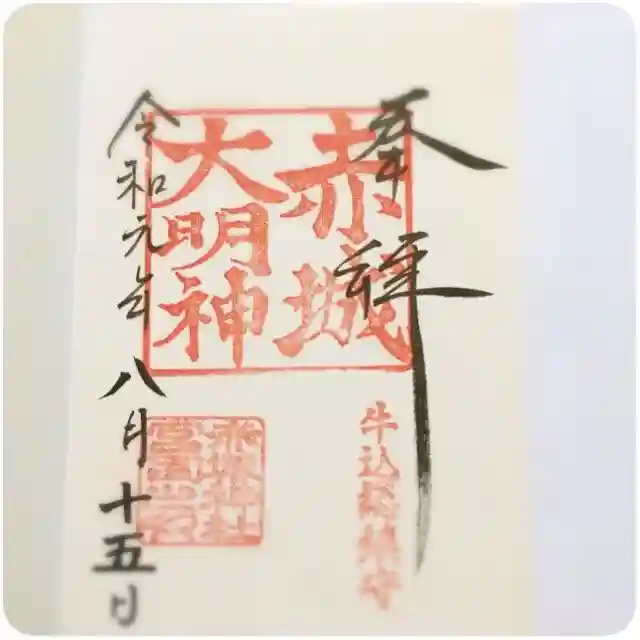 奉拝
赤城
大明神
牛込総鎮守
令和元年八月十五日